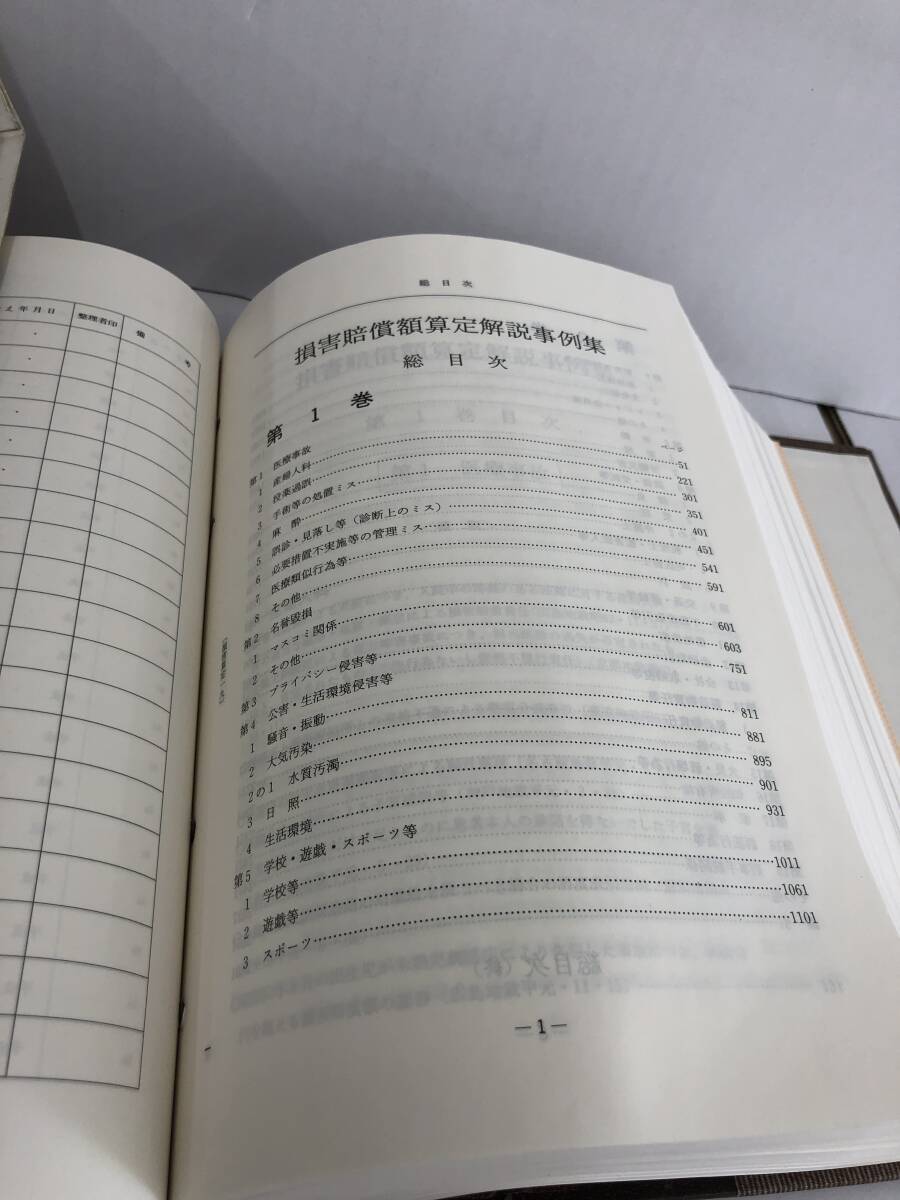 え年月日
整理者印
備 考
総目次
損害賠償額算定解説事例集
総目次
第1巻
第1 医療事故
1 産婦人科
2 投薬過誤
3 手術等の処置ミス
4 麻酔
5 誤診・見落し等（診断上のミス）
6 必要措置不実施等の管理ミス
7 医療類似行為等
8 その他
第2 名誉毀損
1 マスコミ関係
2 その他
第3 プライバシー侵害等
第4 公害・生活環境侵害等
1 騒音・振動
2 大気汚染
2の1 水質汚濁
3 日照
4 生活環境
第5 学校・遊戯・スポーツ等
1 学校等
2 遊戯等
3 スポーツ
51
221
301
351
401
451
541
591
601
603
751
811
881
895
901
931
1011
1061
1101
—1—